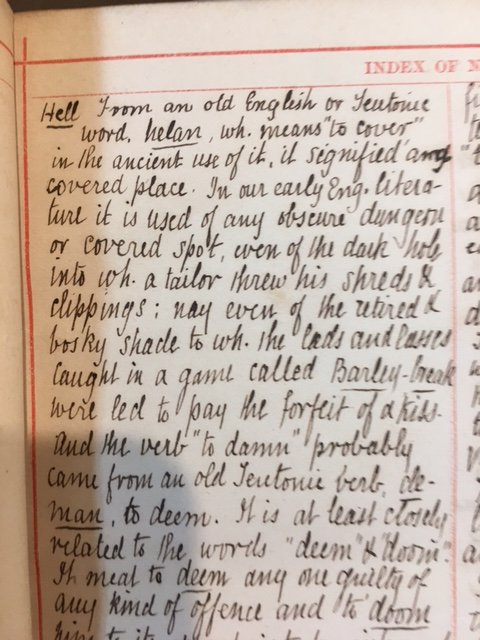 INDEX OF N
Hell From an old English or Teutonic
word, helan, wh. means "to cover"
in the ancient use of it, it signified any
covered place. In our early Eng. litera-
ture it is used of any obscure dungeon
or covered spot, even of the dark hole
into wh. a tailor threw his shreds &
clippings; nay even of the retired &
bosky shade to wh. the lads and lasses
caught in a game called Barley-break
were led to pay the forfeit of a kiss.
And the verb "to damn" probably
came from an old Teutonic verb, de-
man, to deem. It is at least closely
related to the words "deem" & "doom".
It meat to deem any one guilty of
any kind of offence and to doom
him to it